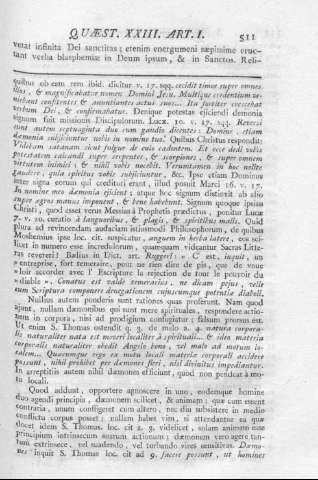 QUÆST. XXIII. ART. I. 511
vetat infinita Dei sanctitas; etenim energumeni sæpissime eruc-
tant verba blasphemiæ in Deum ipsum, & in Sanctos. Reli-
quibus ob eam rem ibid. dicitur v. 17. sqq. cecidit timor super omnes
illos, & magnificabatur nomen Domini Jesu. Multique credentium ve-
niebant confitentes & annuntiantes actus suos... Ita fortiter crescebat
verbum Dei, & confirmabatur. Denique potestas ejiciendi dæmonia
signum fuit missionis Discipulorum. Luc. 10. v. 17. sqq. Reversi
sunt autem septuaginta duo cum gaudio dicentes: Domine, etiam
dæmonia subjiciuntur nobis in nomine tuo. Quibus Christus respondit:
Videbam satanam sicut fulgur de cœlo cadentem. Et ecce dedi vobis
potestatem calcandi super serpentes, & scorpiones, & super omnem
virtutem inimici & nihil vobis nocebit. Verumtamen in hoc nolite
gaudere, quia spiritus vobis subjiciuntur, &c. Ipse etiam Dominus
inter signa eorum qui credituri erant, illud posuit Marci 16. v. 17.
In nomine meo dæmonia ejicient; atque hoc signum distinxit ab alio
super ægros manus imponent, & bene habebunt. Signum quoque ipsius
Christi, quod esset verus Messias à Prophetis prædictus, ponitur Lucæ
7. v. 20. curatio à languoribus, & plagis, & spiritibus malis. Quid
plura ad revincendam audaciam istiusmodi Philosophorum, de quibus
Moshemius ipse loc. cit. suspicatur, anguem in herba latere, eos sci-
licet in numero esse incredulorum, quamquam videantur Sacras Litte-
ras revereri? Bailius in Dict. art. Ruggeri » C' est, inquit, un
» entreprise, fort temeraire, pour ne rien dire de pis, que de vouç
» loir accorder avec l' Escripture la rejection de tout le pouvoir du
» diable ». Conatus est valde temerarius, ne dicam pejus, velle
cum Scriptura componere denegationem cujuscumque potentiæ diaboli.
Nullius autem ponderis sunt rationes quas proferunt. Nam quod
ajunt, nullam dæmonibus qui sunt mere spirituales, respondere actio-
nem in corpora, nisi ad prodigium confugiatur; falsum prorsus est.
Ut enim S. Thomas ostendit q. 3. de malo a. 4. natura corpora-
lis naturaliter nata est moveri localiter à spirituali... & ideo materia
corporalis naturaliter obedit Angelo bono, vel malo ad motum lo-
calem... Quæcumque ergo ex motu locali materiæ corporali accidere
possunt, nihil prohibet per dæmones fieri, nisi divinitus impediantur.
In arreptitiis autem nihil dæmones efficiunt, quod non pendeat à mo-
tu locali.
Quod addunt, opportere agnoscere in uno, eodemque homine
duo agendi principia, dæmonem scilicet, & animam; quæ cum essent
contraria, unum confligeret cum altero, nec diu subsistere in medio
conflictu corpus posset; nullam habet vim, si attendantur ea quæ
docet idem S. Thomas loc. cit. a. 3. videlicet, solam animam esse
principium intrinsecum suarum actionum; dæmonem vero agere tan-
tum extrinsece, vel suadendo, vel turbando vires sensitivas. Dæmo-
nes inquit S. Thomas loc. cit ad 9. facere possunt, ut homines